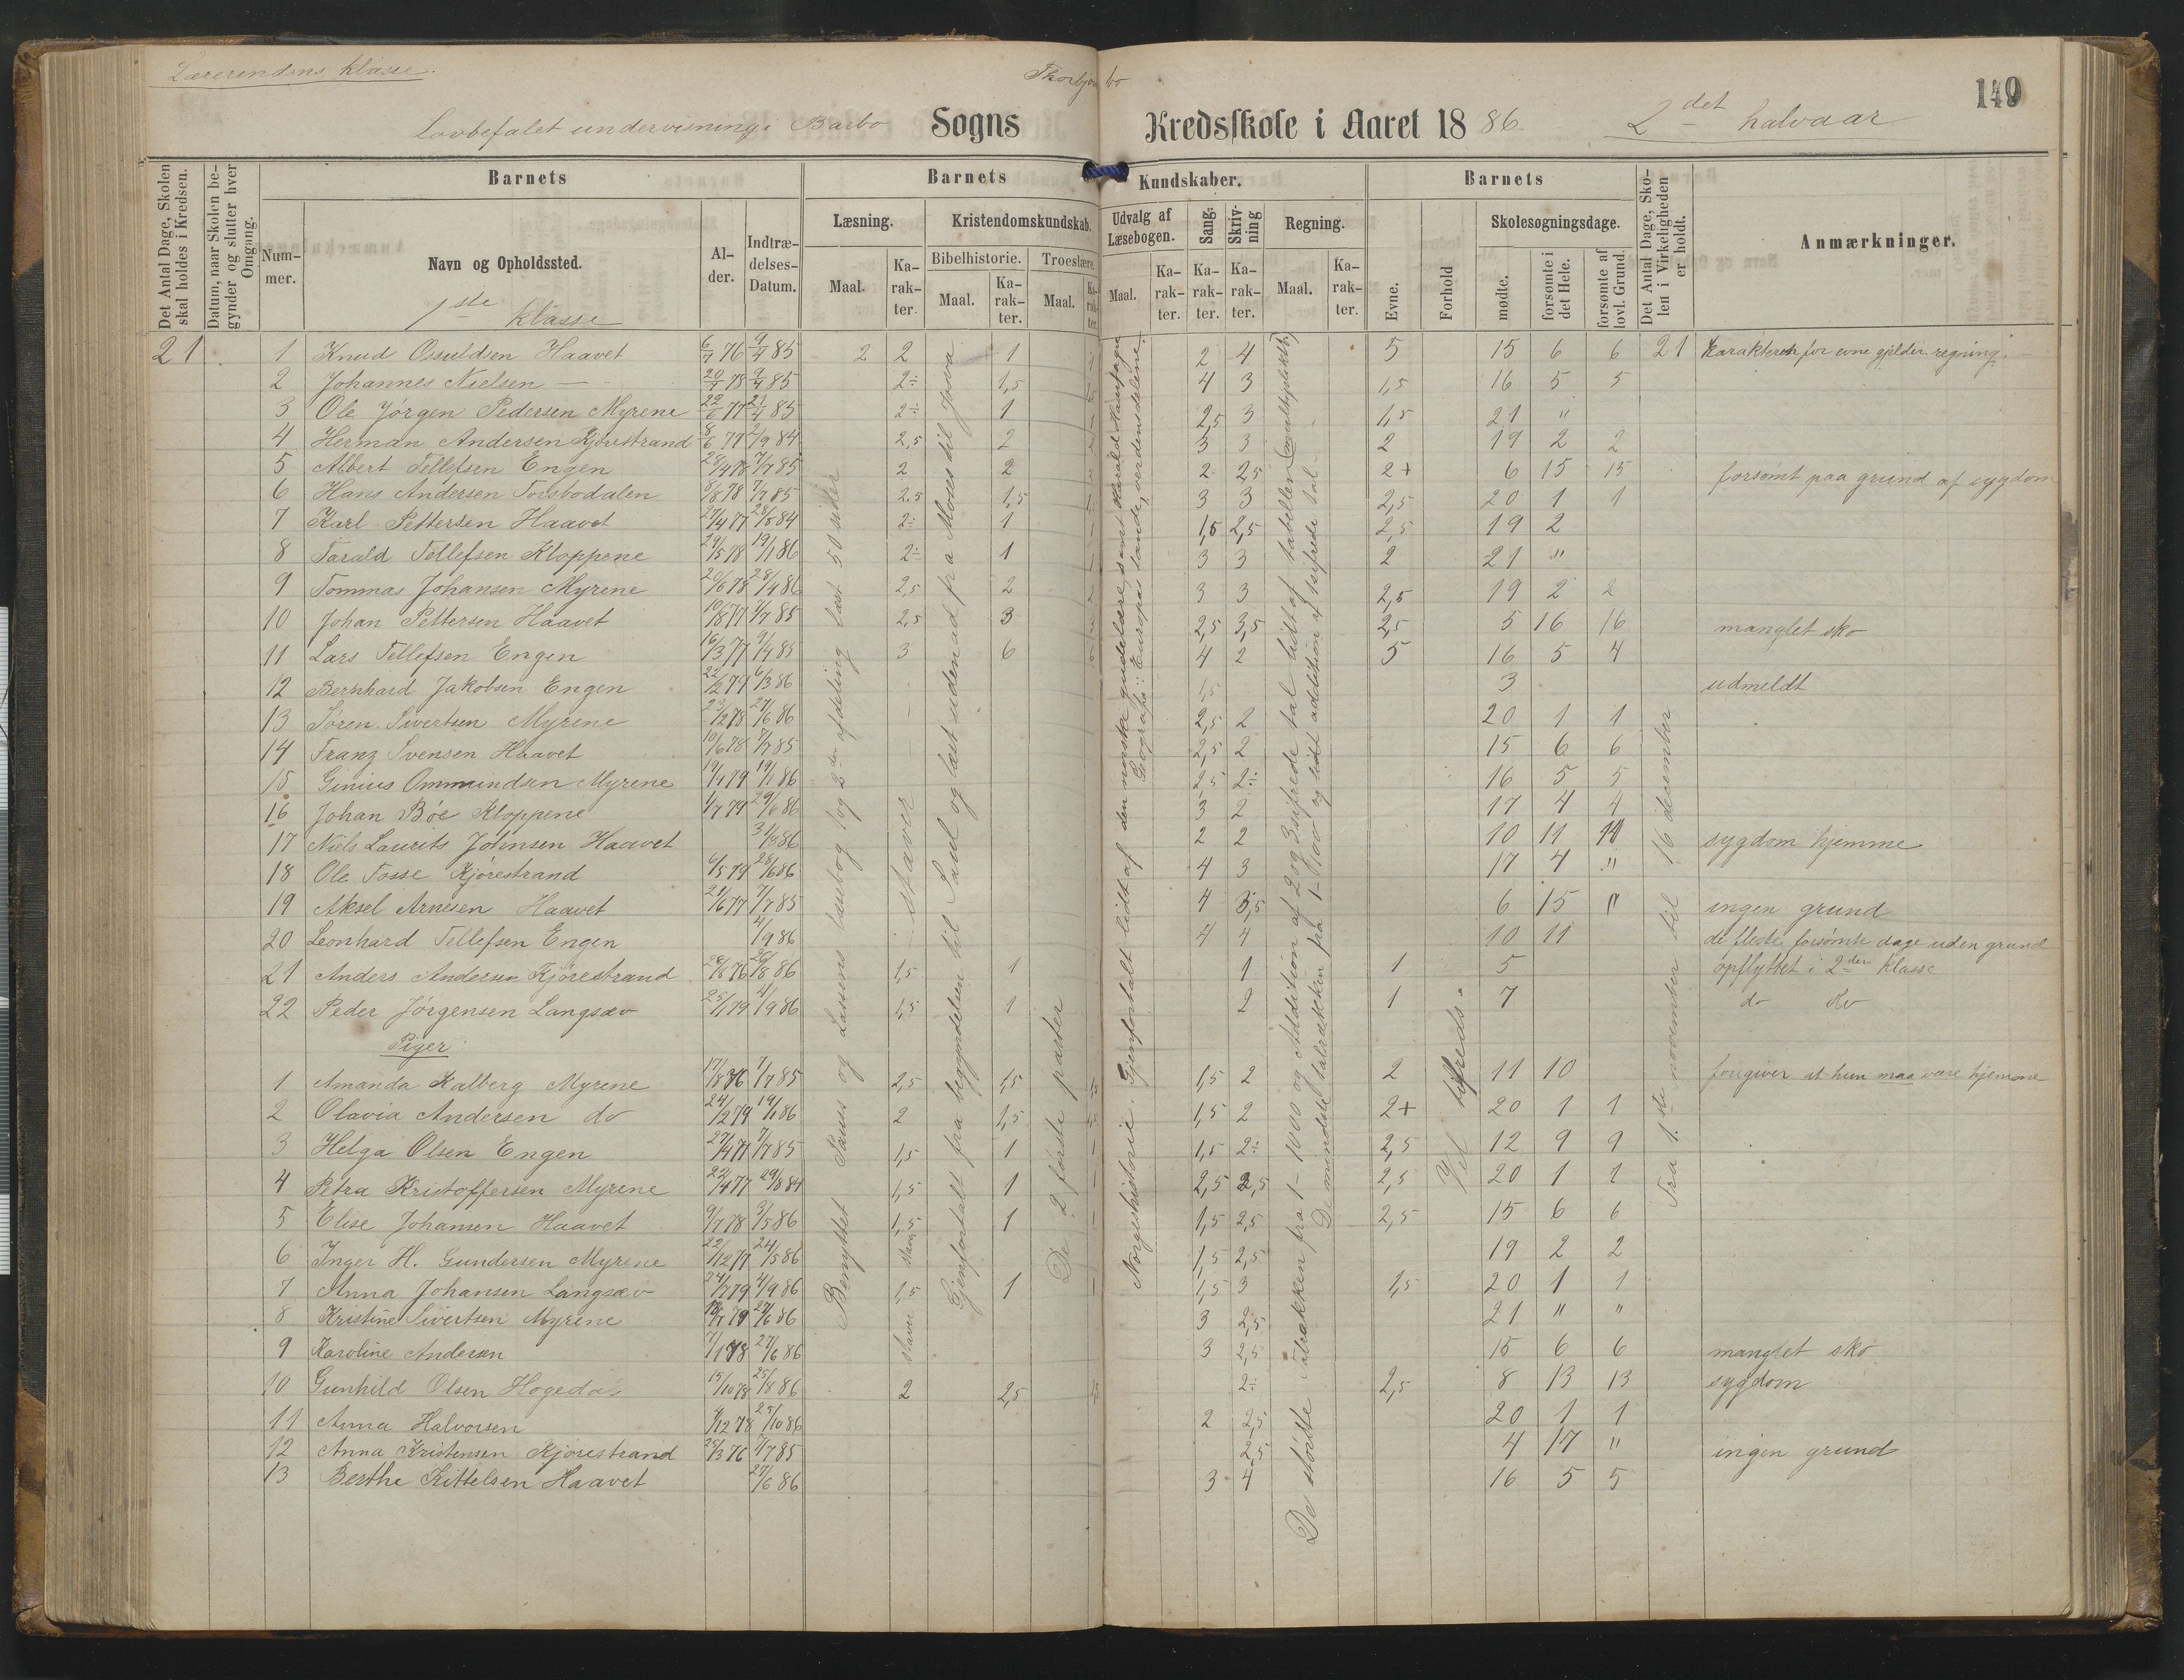 Lærerindens klasse.
149
Lovbefalet undervisning i Barbo Sogns Kredsskole i Aaret 1886 2det halvaar
Det Antal Dage, Skolen skal holdes i Kredsen.
Datum, naar Skolen begynder og slutter hver Omgang.
Barnets
Nummer.
Navn og Opholdssted.
Alder.
Indtrædelses-Datum.
Barnets Kundskaber.
Læsning.
Maal.
Karakter.
Kristendomskundskab.
Bibelhistorie.
Maal.
Karakter.
Troeslære.
Maal.
Karakter.
Udvalg af Læsebogen.
Maal.
Karakter.
Sang.
Karakter.
Skrivning
Karakter.
Regning.
Maal.
Karakter.
Barnets
Evne.
Forhold
Skolesøgningsdage.
mødte.
forsømte i det Hele.
forsømte af lovl. Grund.
Det Antal Dage, Skolen i Virkeligheden er holdt.
Anmærkninger.
1ste klasse
21 1 Knud Osuldsen Haavet 6/7 76 9/4 85 2 2 1 2 4 5 15 6 6 21 Karakteren for evne gjelder regning.
2 Johannes Nielsen — 20/7 78 9/4 85 2÷ 1,5 4 3 1,5 16 5 5
3 Ole Jørgen Pedersen Myrene 22/6 77 21/4 85 2÷ 1 2,5 3 1,5 21 "
4 Herman Andersen Kjørestrand 8/6 77 2/9 84 2,5 2 3 3 2 19 2 2
5 Albert Tellefsen Engen 28/4 78 7/7 85 2 2 2 2,5 2+ 6 15 15 forsømt paa grund af sygdom
6 Hans Andersen Torsbodalen 8/8 78 7/7 85 2,5 1,5 3 3 2,5 20 1 1
7 Karl Pettersen Haavet 27/4 77 28/5 84 2÷ 1 1,5 2,5 2,5 19 2
8 Tarald Tellefsen Kloppene 29/5 78 19/1 86 2÷ 1 3 3 2 21 "
9 Tommas Johansen Myrene 20/6 78 28/4 86 2,5 2 3 3 2,5 19 2 2
10 Johan Pettersen Haavet 10/8 77 7/7 85 2,5 3 2,5 3,5 2,5 5 16 16 manglet sko
11 Lars Tellefsen Engen 16/3 77 9/4 85 3 6 4 2 5 16 5 4
12 Bernhard Jakobsen Engen 22/2 79 6/3 86 1,5 3 udmeldt
13 Søren Sivertsen Myrene 23/2 78 27/6 86 2,5 2 20 1 1
14 Franz Svensen Haavet 10/6 78 7/7 85 2,5 2 15 6 6
15 Ginius Ommundsen Myrene 19/1 79 19/1 86 2,5 2÷ 16 5 5
16 Johan Bøe Kloppene 1/7 79 29/6 86 3 2 17 4 4
17 Niels Laurits Johnsen Haavet 31/8 86 2 2 10 11 11 sygdom hjemme
18 Ole Fosse Kjørestrand 6/5 79 28/6 86 4 3 17 4 "
19 Aksel Arnesen Haavet 21/6 77 7/7 85 4 3,5 6 15 " ingen grund
20 Leonhard Tellefsen Engen 4/9 86 4 4 10 11 de fleste forsømte dage uden grund
21 Anders Andersen Kjørestrand 28/8 76 26/8 86 1,5 1 1 1 5 opflyttet i 2den klasse
22 Peder Jørgensen Langsæv 25/1 79 4/9 86 1,5 1 2 1 7 do do
Piger:
1 Amanda Kalberg Myrene 17/8 76 7/7 85 2,5 1,5 1,5 2 2 11 10 foregiver at hun maa være hjemme
2 Olavia Andersen do 24/2 79 19/1 86 2 1,5 1,5 2 2+ 20 1 1
3 Helga Olsen Engen 27/4 77 7/7 85 1,5 1 1,5 2÷ 2,5 12 9 9
4 Petra Kristoffersen Myrene 22/4 77 29/8 84 1,5 1 2,5 2,5 2,5 20 1 1
5 Elise Johansen Haavet 9/7 78 3/5 86 1,5 1 1,5 2,5 2,5 15 6 6
6 Inger H. Gundersen Myrene 22/12 77 24/5 86 staver 1,5 2,5 19 2 2
7 Anna Johansen Langsæv 24/7 79 4/9 86 1,5 1 1,5 3 1,5 20 1 1
8 Kristine Sivertsen Myrene 18/7 79 27/6 86 staver 3 2,5 21 " "
9 Karoline Andersen 7/1 78 27/6 86 3 2,5 15 6 6 manglet sko
10 Gunhild Olsen Hogedal 15/10 78 25/8 86 2 2,5 2÷ 2,5 8 13 13 sygdom
11 Anna Halvorsen 4/12 78 25/10 86 2 2,5 20 1 1
12 Anna Kristensen Kjørestrand 25/3 76 7/7 85 2,5 4 17 " ingen grund
13 Berthe Kittelsen Haavet 27/6 86 3 4 16 5 5
Benyttet Pauss og Lassens læsebog og 2den afdeling læst 50 sider
staver
Gjenfortalt fra begyndelsen til Saul og læst udenad fra Moses til Josva
De 2 første parter
Norgeshistorie. Gjenfortalt lidt af den norske gudelære, samt Harald Haarfagre
Geografi: Europas lande, verdensdelene.
De største talrækken fra 1-1000 og Addition af 2 og 3sifrede tal lidt af tabellen (multiplikation)
De mindste talrækken fra 1-100 og lidt addition af 1sifrede tal
Vel tilfreds.
Fra 1ste november til 16 december